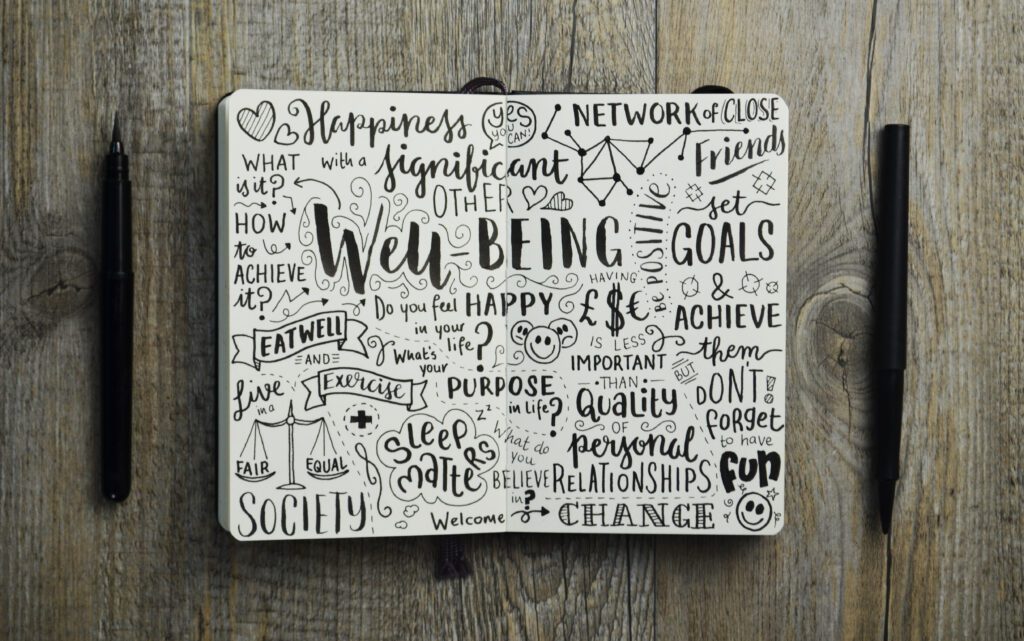 Happiness
yes
YOU
CAN!
WHAT
is it?
with a
significant
OTHER
HOW
to
ACHIEVE
it?
Well-BEING
NETWORK of CLOSE
Friends
BE POSITIVE
set
GOALS
&
ACHIEVE
them
BUT
DON'T!
forget
to have
fun
Do you feel HAPPY
in your
life?
HAVING
£$€
IS LESS
IMPORTANT
THAN
Quality
OF
personal
RELATIONSHIPS
EATWELL
AND
Exercise
What's
your
PURPOSE
in life?
Live
in a
FAIR
EQUAL
SOCIETY
zz
SLEEP
matters
What do
you
BELIEVE
in?
Welcome
CHANGE